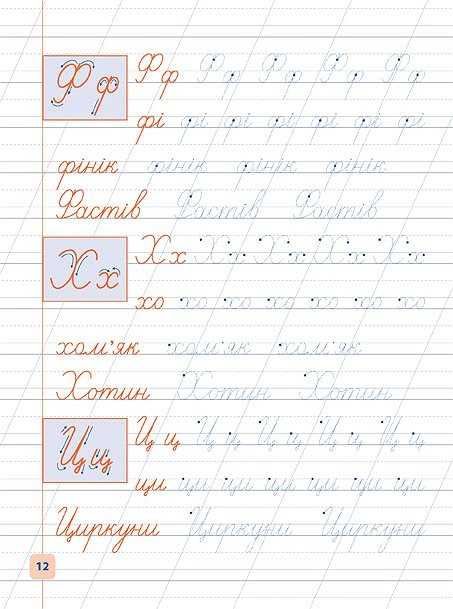 Фф Фф Фф Фф Фф Фф
фі фі фі фі фі фі фі
фінік фінік фінік фінік
Фастів Фастів Фастів
Хх Хх Хх Хх Хх Хх
хо хо хо хо хо хо хо
хом'як хом'як хом'як
Хотин Хотин Хотин
Цц Цц Цц Цц Цц Цц
ци ци ци ци ци ци ци
Циркуни Циркуни Циркуни
12